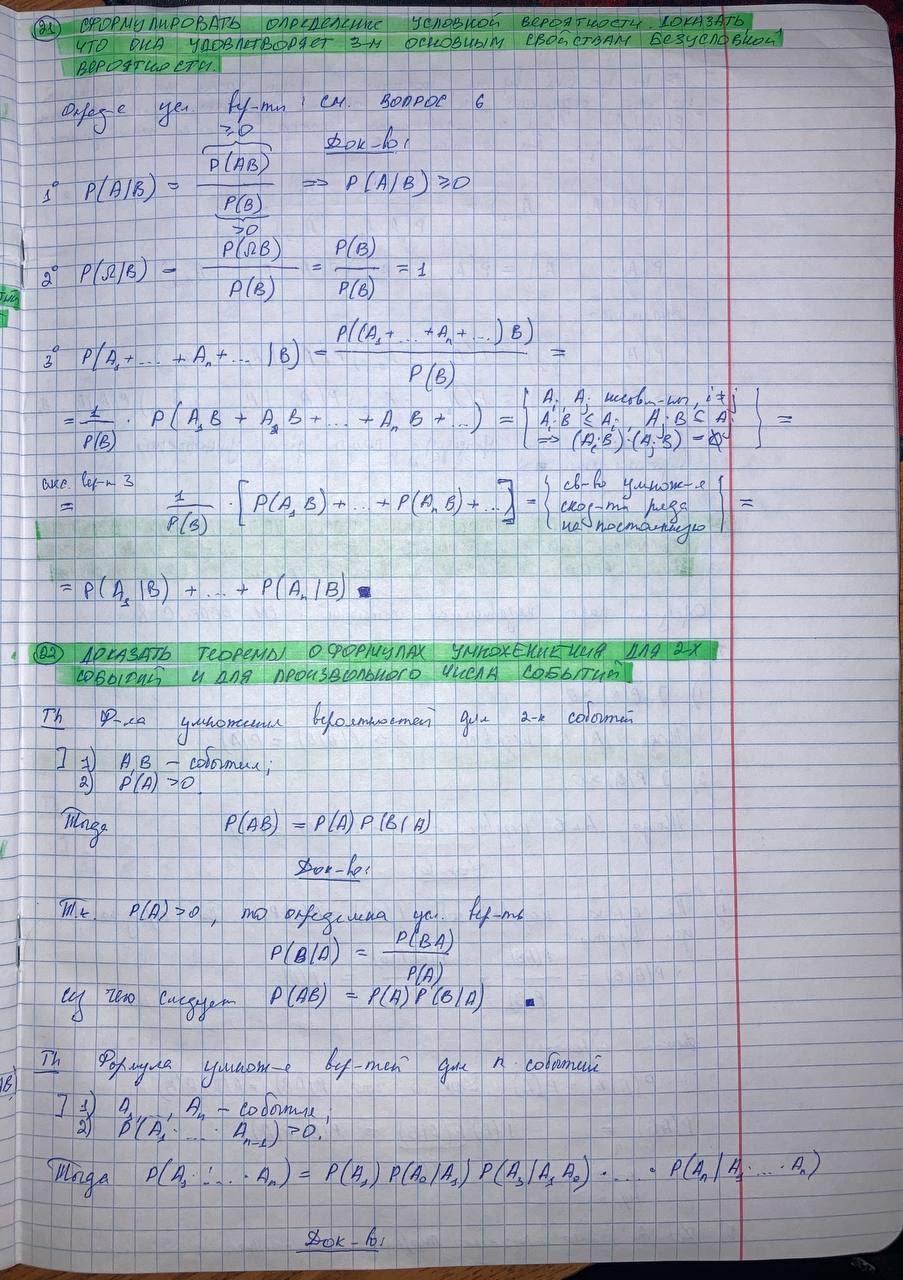 21 СФОРМУЛИРОВАТЬ ОПРЕДЕЛЕНИЕ УСЛОВНОЙ ВЕРОЯТНОСТИ. ДОКАЗАТЬ
ЧТО ОНА УДОВЛЕТВОРЯЕТ 3-М ОСНОВНЫМ СВОЙСТВАМ БЕЗУСЛОВНОЙ
ВЕРОЯТНОСТИ.
Опред-е усл. вер-ти: см. ВОПРОС 6
Док-во:
1° P(A|B) = P(AB) / P(B) ⇒ P(A|B) ≥ 0
≥0
>0
2° P(Ω|B) = P(ΩB) / P(B) = P(B) / P(B) = 1
3° P(A₁ + ... + Aₙ + ... | B) = P((A₁ + ... + Aₙ + ...) B) / P(B) =
= 1 / P(B) · P(A₁B + A₂B + ... + AₙB + ...) = { Aᵢ, Aⱼ несовм-ны, i ≠ j
AᵢB ⊆ Aᵢ, AⱼB ⊆ Aⱼ
⇒ (AᵢB)·(AⱼB) = ∅ } =
акс. вер-ти 3
= 1 / P(B) · [P(A₁B) + ... + P(AₙB) + ...] = { св-во умнож-я
сход-ся ряда
на постоянную } =
= P(A₁|B) + ... + P(Aₙ|B) ■
22 ДОКАЗАТЬ ТЕОРЕМЫ О ФОРМУЛАХ УМНОЖЕНИЕНИЯ ДЛЯ 2-Х
СОБЫТИЙ И ДЛЯ ПРОИЗВОЛЬНОГО ЧИСЛА СОБЫТИЙ
Th Ф-ла умножения вероятностей для 2-х событий
] 1) A, B – события;
2) P(A) > 0.
Тогда P(AB) = P(A) P(B|A)
Док-во:
Т.к. P(A) > 0, то определена усл. вер-ть
P(B|A) = P(BA) / P(A)
из чего следует P(AB) = P(A) P(B|A) ■
Th Формула умнож-я вер-тей для n событий
] 1) A₁, ..., Aₙ – события;
2) P(A₁ · ... · Aₙ₋₁) > 0.
Тогда P(A₁ · ... · Aₙ) = P(A₁) P(A₂|A₁) P(A₃|A₁A₂) · ... · P(Aₙ|A₁ · ... · Aₙ)
Док-во: